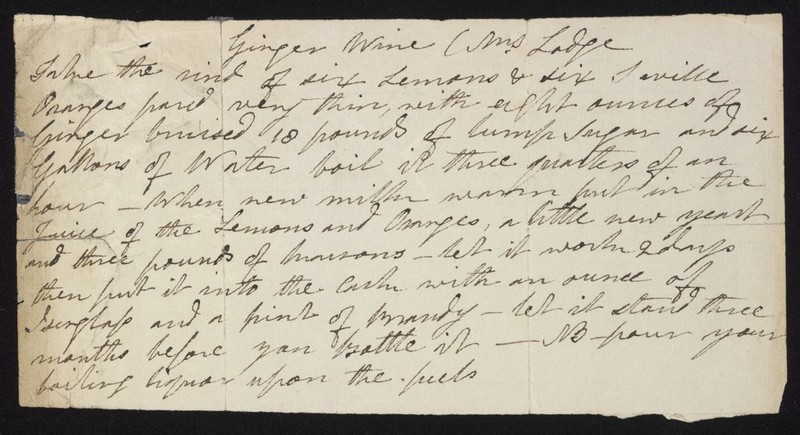 Ginger Wine (Mrs Lodge
Take the rind of six Lemons & six Seville
Oranges pared very thin, with eight ounces of
Ginger bruised 18 pounds of lump Sugar and six
Gallons of Water boil it three quarters of an
hour – When new milk warm put in the
Juice of the Lemons and Oranges, a little new yeast
and three pounds of – let it work 2 days
then put it into the Cask with an ounce of
Isinglass and a pint of Brandy – let it stand three
months before you Bottle it – NB pour your
boiling liquor upon the peels